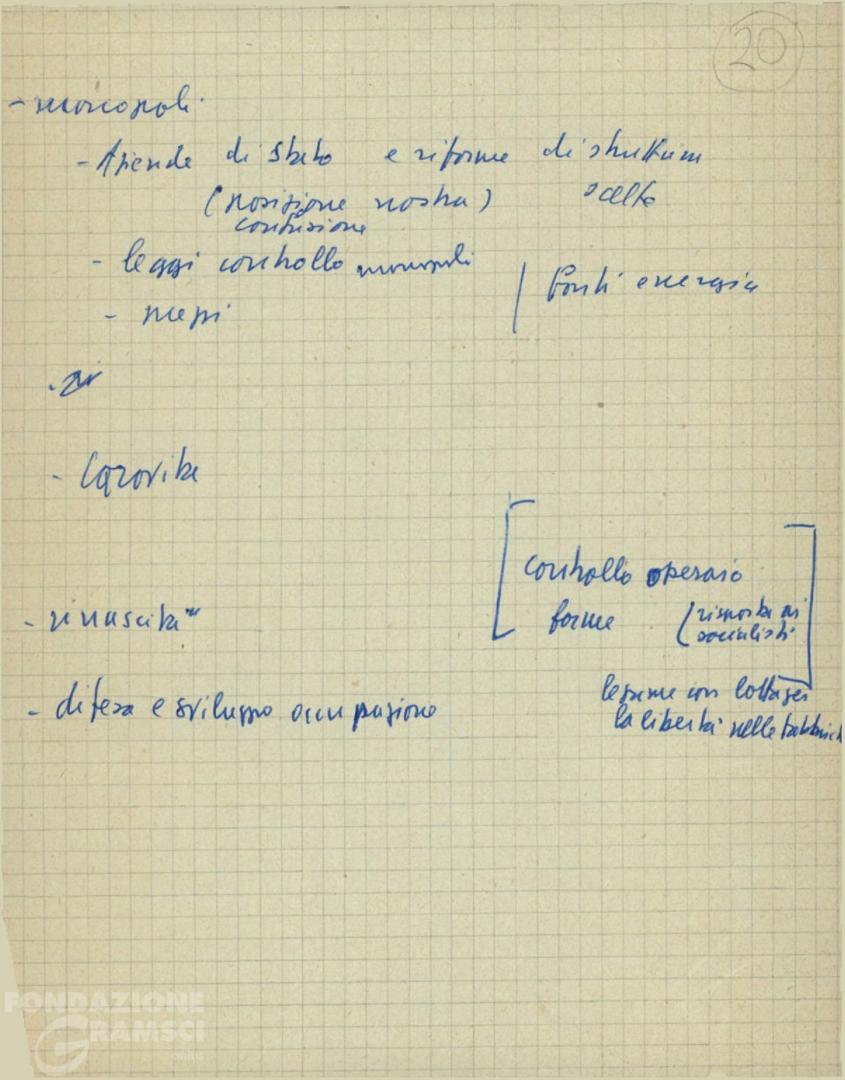 20
- monopoli
- Aziende di Stato e riforme di struttura
(posizione nostra) scelte
confusione
- leggi controllo monopoli
- prezzi
| Fonti energia
- Carovita
[ controllo operaio
forme (risposta ai
socialisti ]
- rinascita
- difesa e sviluppo occupazione
legame con lotta per
la libertà nelle fabbriche
FONDAZIONE
GRAMSCI